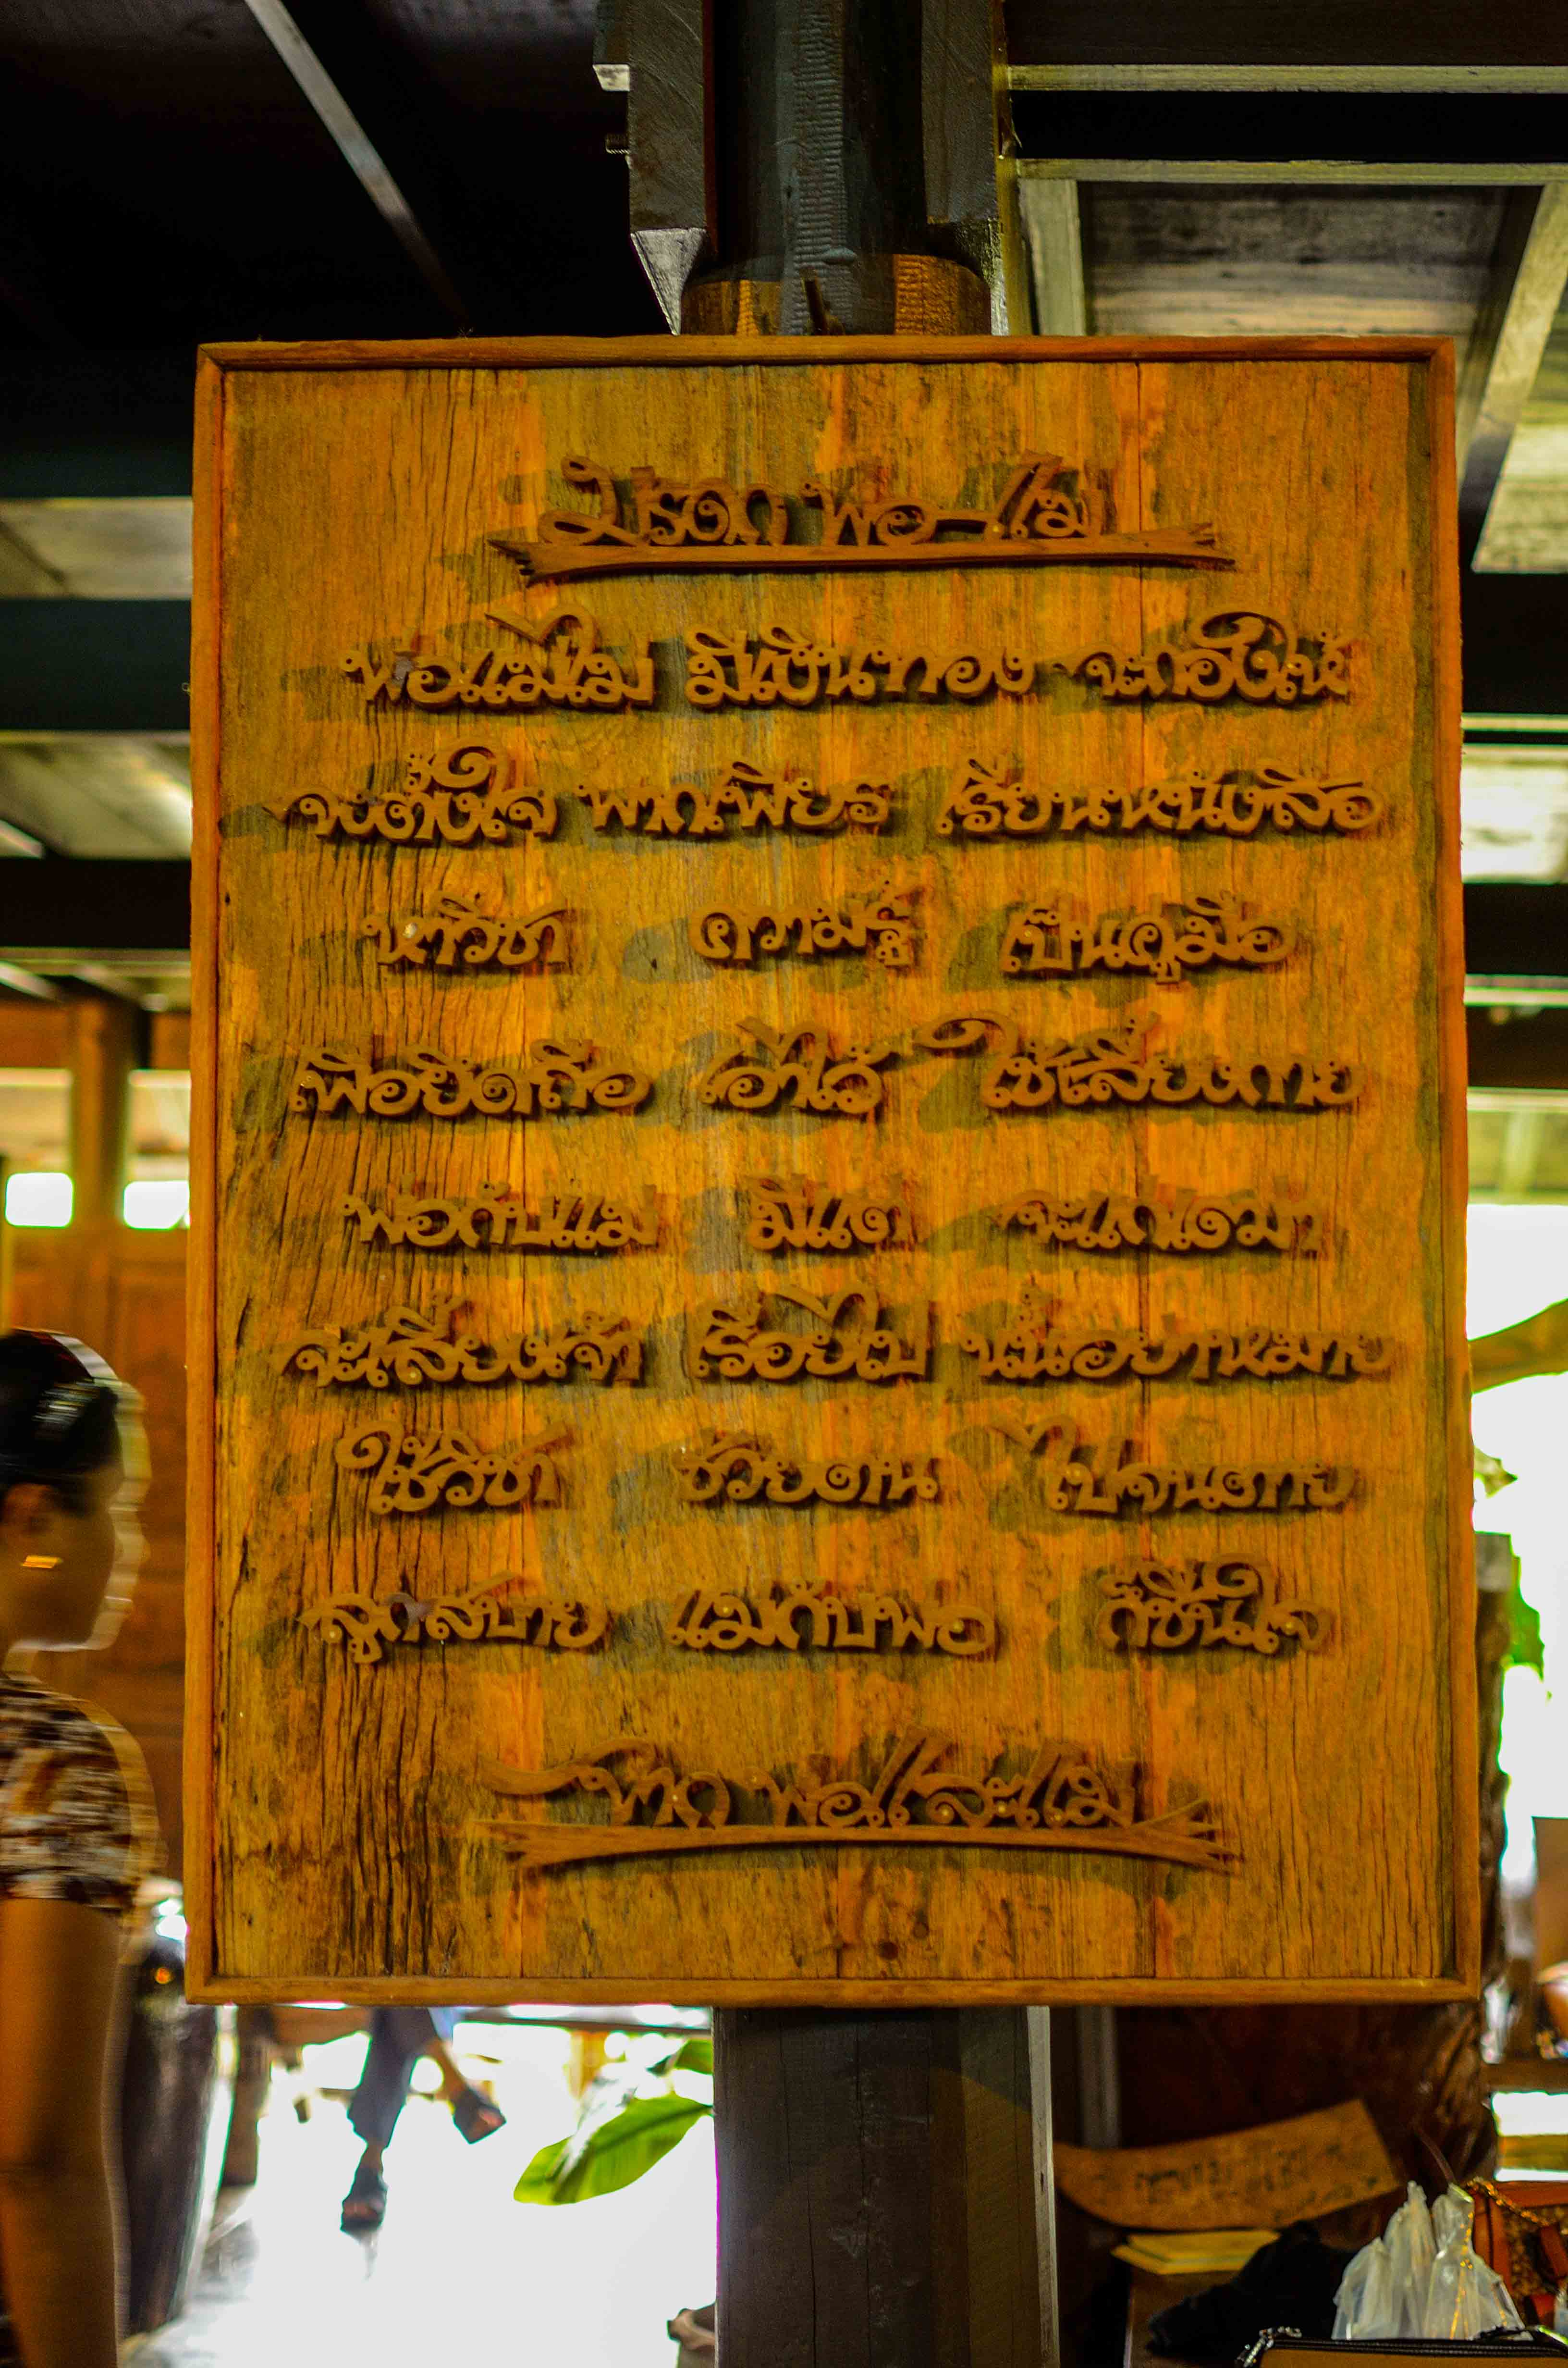 มรดก พ่อ-แม่
พ่อแม่ไม่ มีเงินทอง จะกองให้
จงตั้งใจ พากเพียร เรียนหนังสือ
หาวิชา ความรู้ เป็นคู่มือ
เพื่อยึดถือ เอาไว้ ใช้เลี้ยงกาย
พ่อกับแม่ มีแต่ จะแก่เฒ่า
จะเลี้ยงเจ้า เรื่อยไป นั้นอย่าหมาย
ใช้วิชา ช่วยตน ไปจนตาย
ลูกสบาย แม่กับพ่อ ก็ชื่นใจ
จาก พ่อและแม่